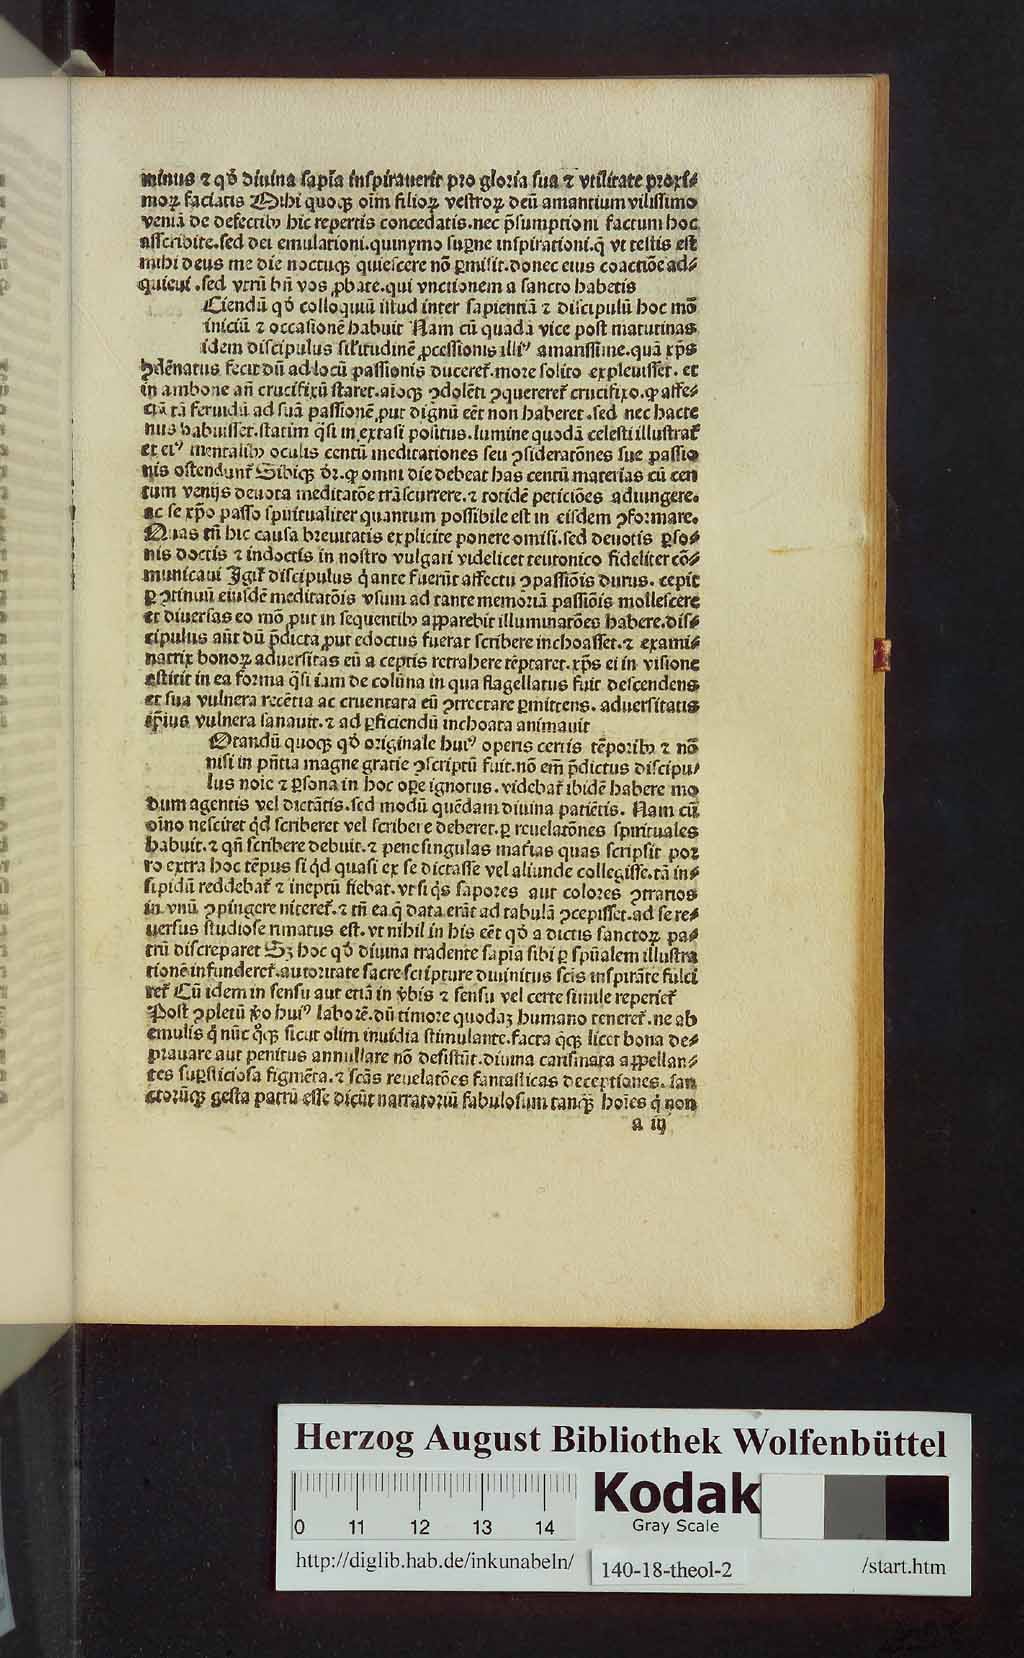 minus ⁊ qď diuina sapīa inspirauerit pro gloria sua ⁊ vtilitate proxi⸗
moꝝ faciatis Mihi quoqꝫ oīm filioꝝ vestroꝝ deū amantium vilissimo
veniā de defectibꝰ hic repertis concedatis.nec p̄sumptioni factum hoc
asscribite.sed dei emulationi.quinymo suꝑne inspirationi.q̄ vt testis est
mihi deus me die noctuqꝫ quiescere nō ꝑmisit.donec eius coactiōe ad⸗
quieui .sed vtrū bn̄ vos ꝓbate.qui vnctionem a sancto habetis
Ciendū qď colloquiū illud inter sapientiā ⁊ discipulū hoc mō
iniciū ⁊ occasionē habuit Nam cū quadā vice post matutinas
idem discipulus sil'itudinē ꝓcessionis illiꝰ amarissime.quā xp̄s
ꝯdēnatus fecit dū ad locū passionis ducereť.more solito expleuisset. et
in ambone an̄ crucifixū staret.aīoqꝫ ꝯdolēti ꝯquerereť crucifixo.ꝙ affe⸗
ctū tā feruidū ad suā passionē ꝓut dignū eēt non haberet.sed nec hacte
nus habuisset.statim q̄si in extasi positus.lumine quodā celesti illustrať
et eiꝰ mentalibꝰ oculis centū meditationes seu ꝯsideratōnes sue passio
nis ostendunť Sibiqꝫ dr̄.ꝙ omni die debeat has centū materias cū cen
tum venijs deuota meditatōe trāscurrere.⁊ totidē peticiōes adiungere.
ac se xp̄o passo spiritualiter quantum possibile est in eisdem ꝯformare.
Quas tn̄ hic causa breuitatis explicite ponere omisi.sed deuotis ꝑso⸗
nis doctis ⁊ indoctis in nostro vulgari videlicet teutonico fideliter cō⸗
municaui Igiť discipulus q̇ ante fuerat affectu ꝯpassiōis durus. cepit
ꝑ ꝯtinuū eiusdē meditatōis vsum ad tante memoriā passiōis mollescere
et diuersas eo mō ꝓut in sequentibꝰ apparebit illuminatōes habere.dis⸗
cipulus aūt dū p̄dicta ꝓut edoctus fuerat scribere inchoasset.⁊ exami⸗
natrix bonoꝝ aduersitas eū a ceptis retrahere tēptaret.xp̄s ei in visione
astitit in ea forma q̄si iam de colūna in qua flagellatus fuit descendens
et sua vulnera recētia ac cruentata eū ꝯtrectare ꝑmittens. aduersitatis
ip̄ius vulnera sanauit.⁊ ad ꝑficiendū inchoata animauit
Otandū quoqꝫ qď originale huiꝰ operis certis tēporibꝰ ⁊ nō
nisi in pn̄tia magne gratie ꝯscriptū fuit.nō em̄ p̄dictus discipu⸗
lus noīe ⁊ ꝑsona in hoc oꝑe ignotus.videbať ibidē habere mo
dum agentis vel dictātis.sed modū quēdam diuina patiētis. Nam cū
oīno nesciret qd scriberet vel scribere deberet.ꝑ reuelatōnes spirituales
habuit.⁊ qn̄ scribere debuit.⁊ pene singulas mať̄ias quas scripsit por
ro extra hoc tēpus si qd quasi ex se dictasse vel aliunde collegisse.tā in⸗
sipidū reddebať ⁊ ineptū fiebat.vt si q̇s sapores aut colores ꝯtrarios
in vnū ꝯpingere nitereť.⁊ tn̄ ea q̄ data erāt ad tabulā ꝯcepisset.ad se re⸗
uersus studiose rimatus est.vt nihil in his eēt qď a dictis sanctoꝝ pa⸗
trū discreparet Sꝫ hoc qď diuina tradente sapīa sibi ꝑ spūalem illustra
tionē infundereť.autoritate sacre scripture diuinitus scis inspirāte fulci
reť Cū idem in sensu aut etiā in v̇bis ⁊ sensu vel certe simile reperieť
Post ꝯpletū ꝟo huiꝰ laborē.dū timore quodaꝫ humano tenereť.ne ab
emulis q̇ nūc qꝫ sicut olim inuidia stimulante.facta qꝫ licet bona de⸗
prauare aut penitus annullare nō desistūt.diuina carismata appellan⸗
tes suꝑsticiosa figmēta.⁊ scās reuelatōes fantasticas deceptiones. san
ctorūqꝫ gesta patrū esse dicūt narratoriū fabulosum tanqꝫ hoīes q̇ non
a iij
Herzog August Bibliothek Wolfenbüttel
0 11 12 13 14
Kodak
Gray Scale
http://diglib.hab.de/inkunabeln/ 140-18-theol-2 /start.htm